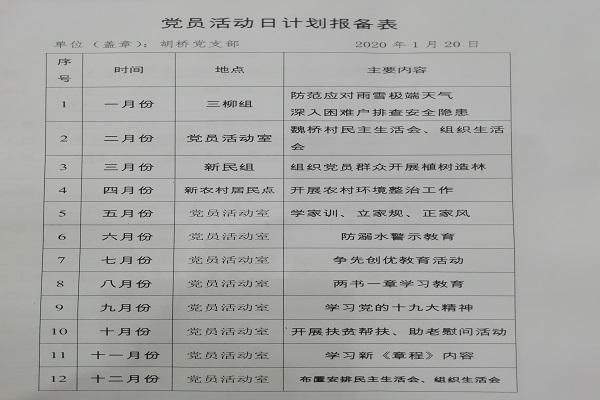 党员活动日计划报备表
单位（盖章）：胡桥党支部 2020年1月20日
序号 时间 地点 主要内容
1 一月份 三柳组 防范应对雨雪极端天气
深入困难户排查安全隐患
2 二月份 党员活动室 魏桥村民主生活会、组织生活
会
3 三月份 新民组 组织党员群众开展植树造林
4 四月份 新农村居民点 开展农村环境整治工作
5 五月份 党员活动室 学家训、立家规、正家风
6 六月份 党员活动室 防溺水警示教育
7 七月份 党员活动室 争先创优教育活动
8 八月份 党员活动室 两书一章学习教育
9 九月份 党员活动室 学习党的十九大精神
10 十月份 党员活动室 开展扶贫帮扶、助老慰问活动
11 十一月份 党员活动室 学习新《章程》内容
12 十二月份 党员活动室 布置安排民主生活会、组织生活会